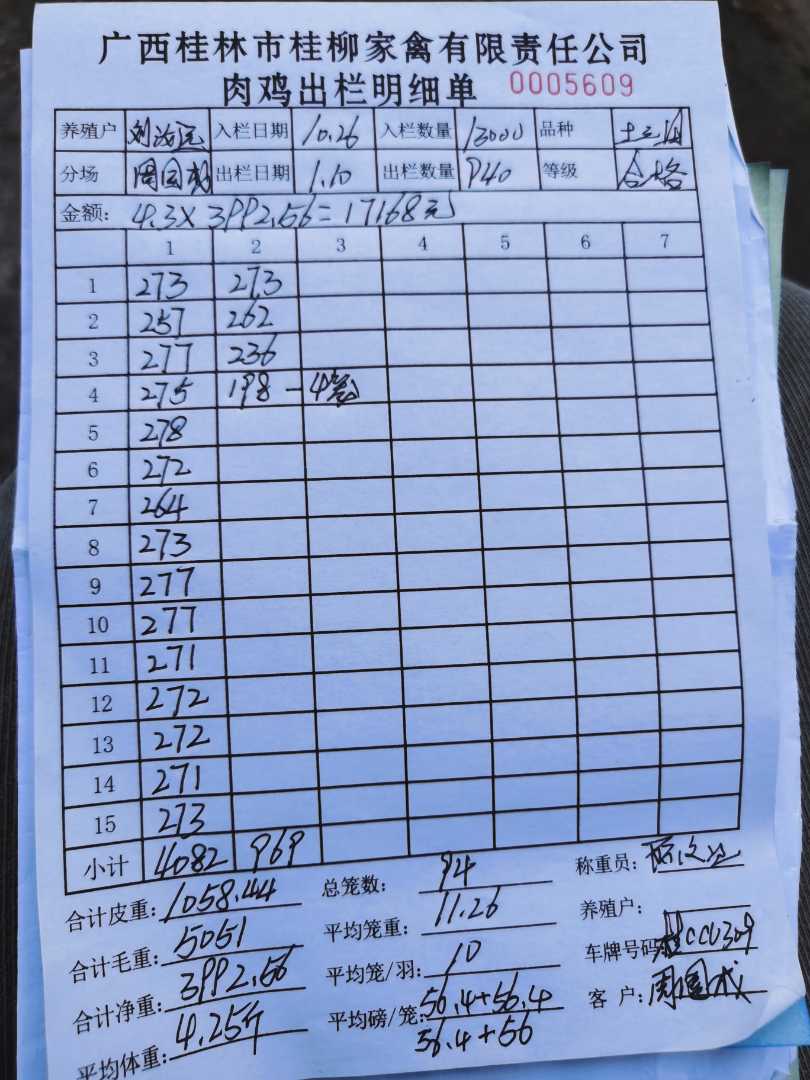 广西桂林市桂柳家禽有限责任公司
肉鸡出栏明细单 0005609
养殖户 入栏日期 10.26 入栏数量 13000 品种 土
分场 周 出栏日期 1.10 出栏数量 940 等级 合格
金额: 4.3×3992.56=17168元
1 2 3 4 5 6 7
1 273 273
2 257 262
3 277 236
4 275 198 -4
5 278
6 272
7 264
8 273
9 277
10 277
11 271
12 272
13 272
14 271
15 273
小计 4082 969
合计皮重: 1058.44 总笼数: 94 称重员:
合计毛重: 5051 平均笼重: 11.26 养殖户:
合计净重: 3992.56 平均笼/羽: 10 车牌号码:
平均体重: 4.25斤 平均磅/笼: 56.4+56.4 客 户: 周
56.4+56